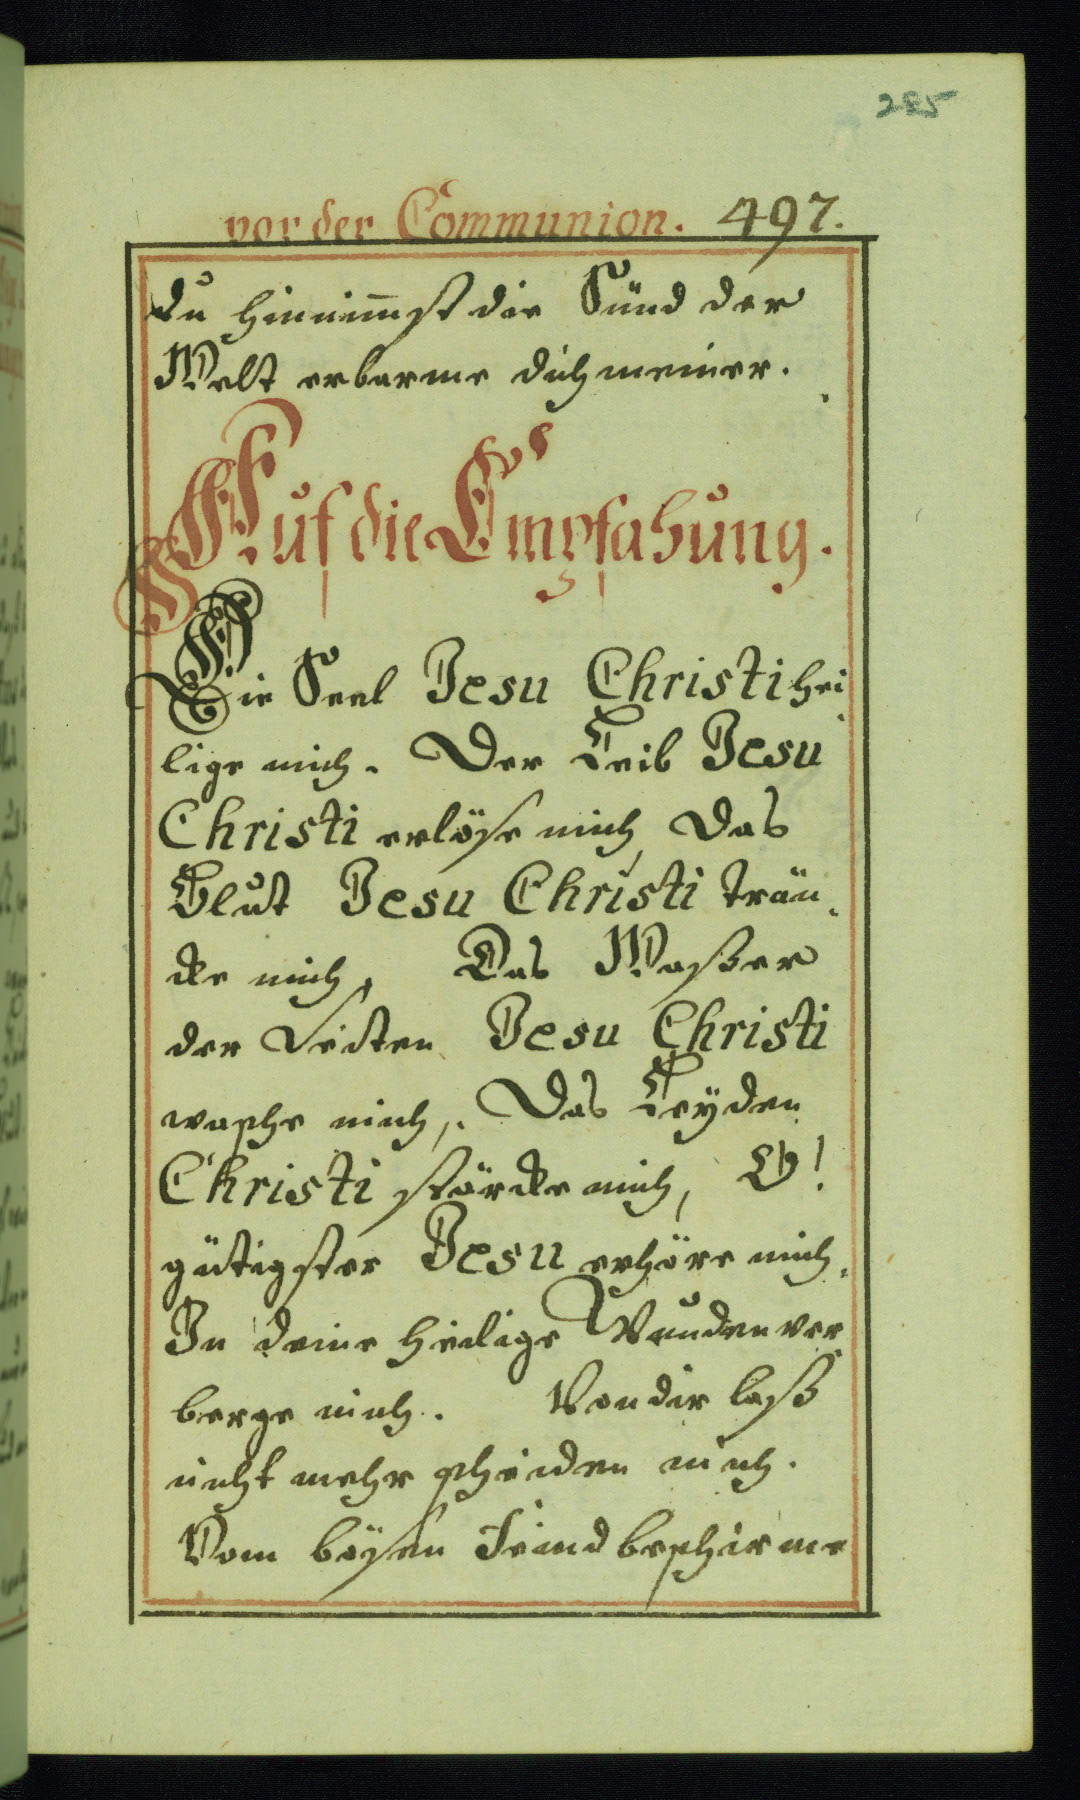 285
vor der Communion. 497.
du hinnim̅st die Sünd der
Welt erbarme dich meiner.
Auf die Empfahung.
Die Seel Jesu Christi hei¬
lige mich. Der Leib Jesu
Christi erlöse mich, das
Blut Jesu Christi trän¬
cke mich, Das Waßer
der Seiten Jesu Christi
wasche mich,. Das Leyden
Christi störcke mich, O!
gütigster Jesu erhöre mich,
In deine heilige Wunden ver
berge mich. Von dir laß
nicht mehr scheiden mich.
Vom bösen Feind beschirme